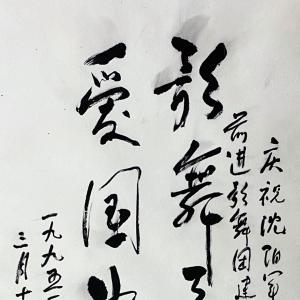 庆祝沈阳军
前进歌舞团建
歌舞
爱国
一九九五
三月